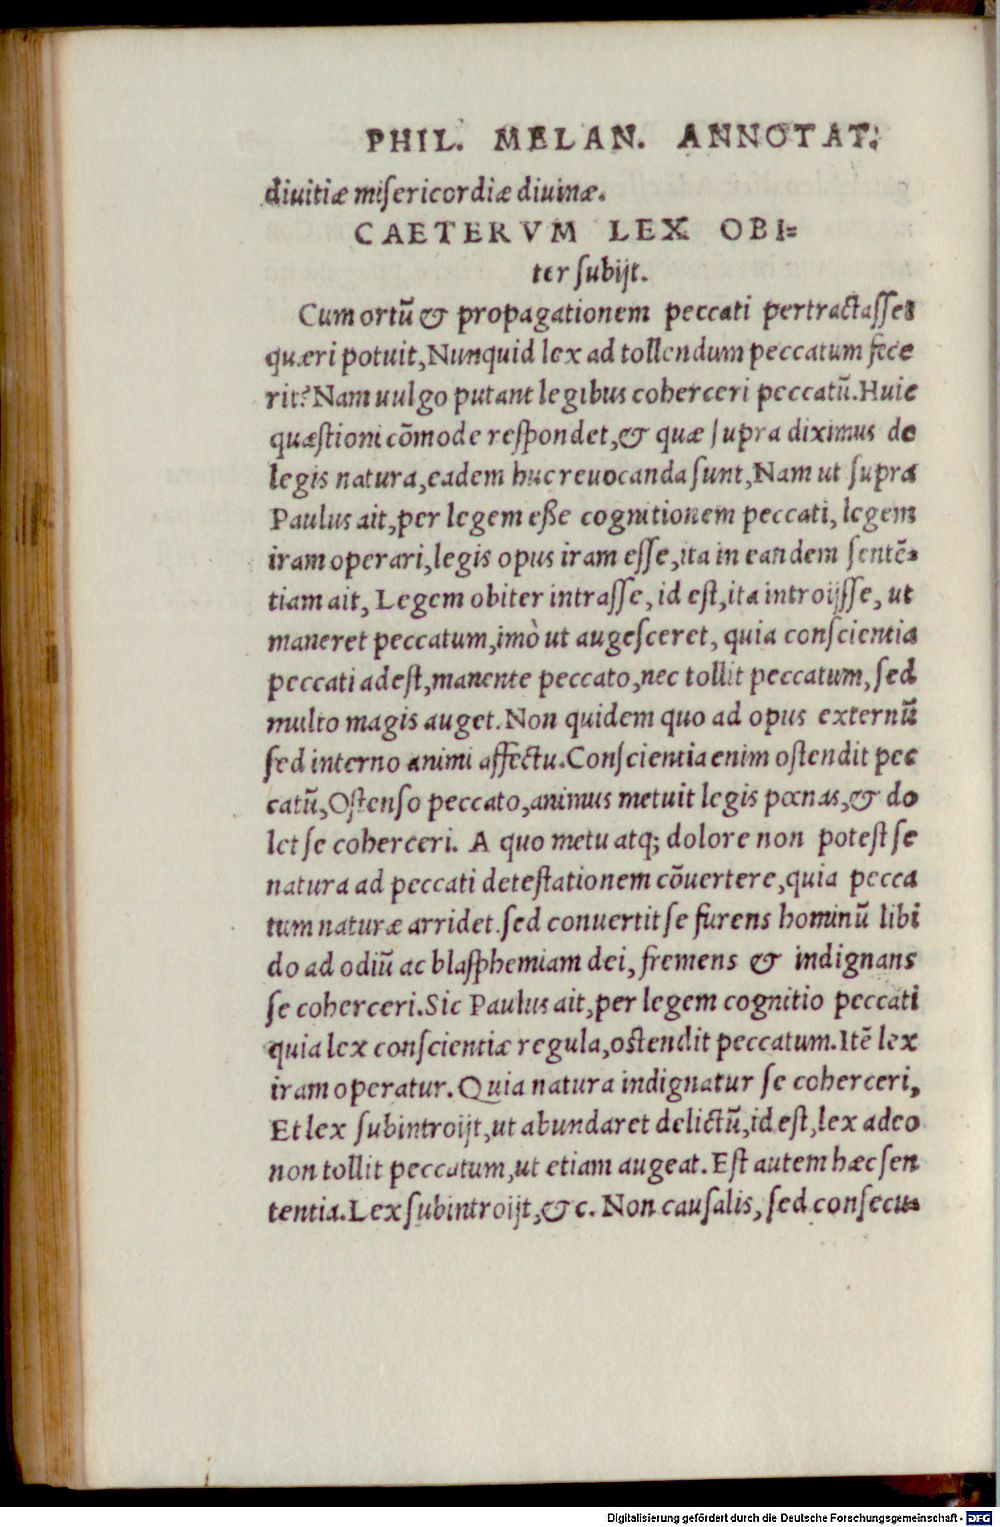 PHIL. MELAN. ANNOTAT.
diuitiæ miſericordiæ diuinæ.
CAETERVM LEX OBI=
ter ſubijt.
Cum ortū & propagationem peccati pertractaſſet
quæri potuit, Nunquid lex ad tollendum peccatum fece
rit? Nam uulgo putant legibus coherceri peccatū. Huic
quæſtioni cōmode reſpondet, & quæ ſupra diximus de
legis natura, eadem huc reuocanda ſunt, Nam ut ſupra
Paulus ait, per legem eße cognitionem peccati, legem
iram operari, legis opus iram eſſe, ita in eandem ſentē=
tiam ait, Legem obiter intraſſe, id eſt, ita introijſſe, ut
maneret peccatum, imò ut augeſceret, quia conſcientia
peccati adeſt, manente peccato, nec tollit peccatum, ſed
multo magis auget. Non quidem quo ad opus externū
ſed interno animi affectu. Conſcientia enim oſtendit pec
catū, Oſtenſo peccato, animus metuit legis pœnas, & do
let ſe coherceri. A quo metu atq; dolore non poteſt ſe
natura ad peccati deteſtationem cōuertere, quia pecca
tum naturæ arridet. ſed conuertit ſe furens hominū libi
do ad odiū ac blaſphemiam dei, fremens & indignans
ſe coherceri. Sic Paulus ait, per legem cognitio peccati
quia lex conſcientiæ regula, oſtendit peccatum. Itē lex
iram operatur. Quia natura indignatur ſe coherceri,
Et lex ſubintroijt, ut abundaret delictū, id eſt, lex adeo
non tollit peccatum, ut etiam augeat. Eſt autem hæc ſen
tentia. Lex ſubintroijt, &c. Non cauſalis, ſed conſecu=
Digitalisierung gefördert durch die Deutsche Forschungsgemeinschaft - DFG